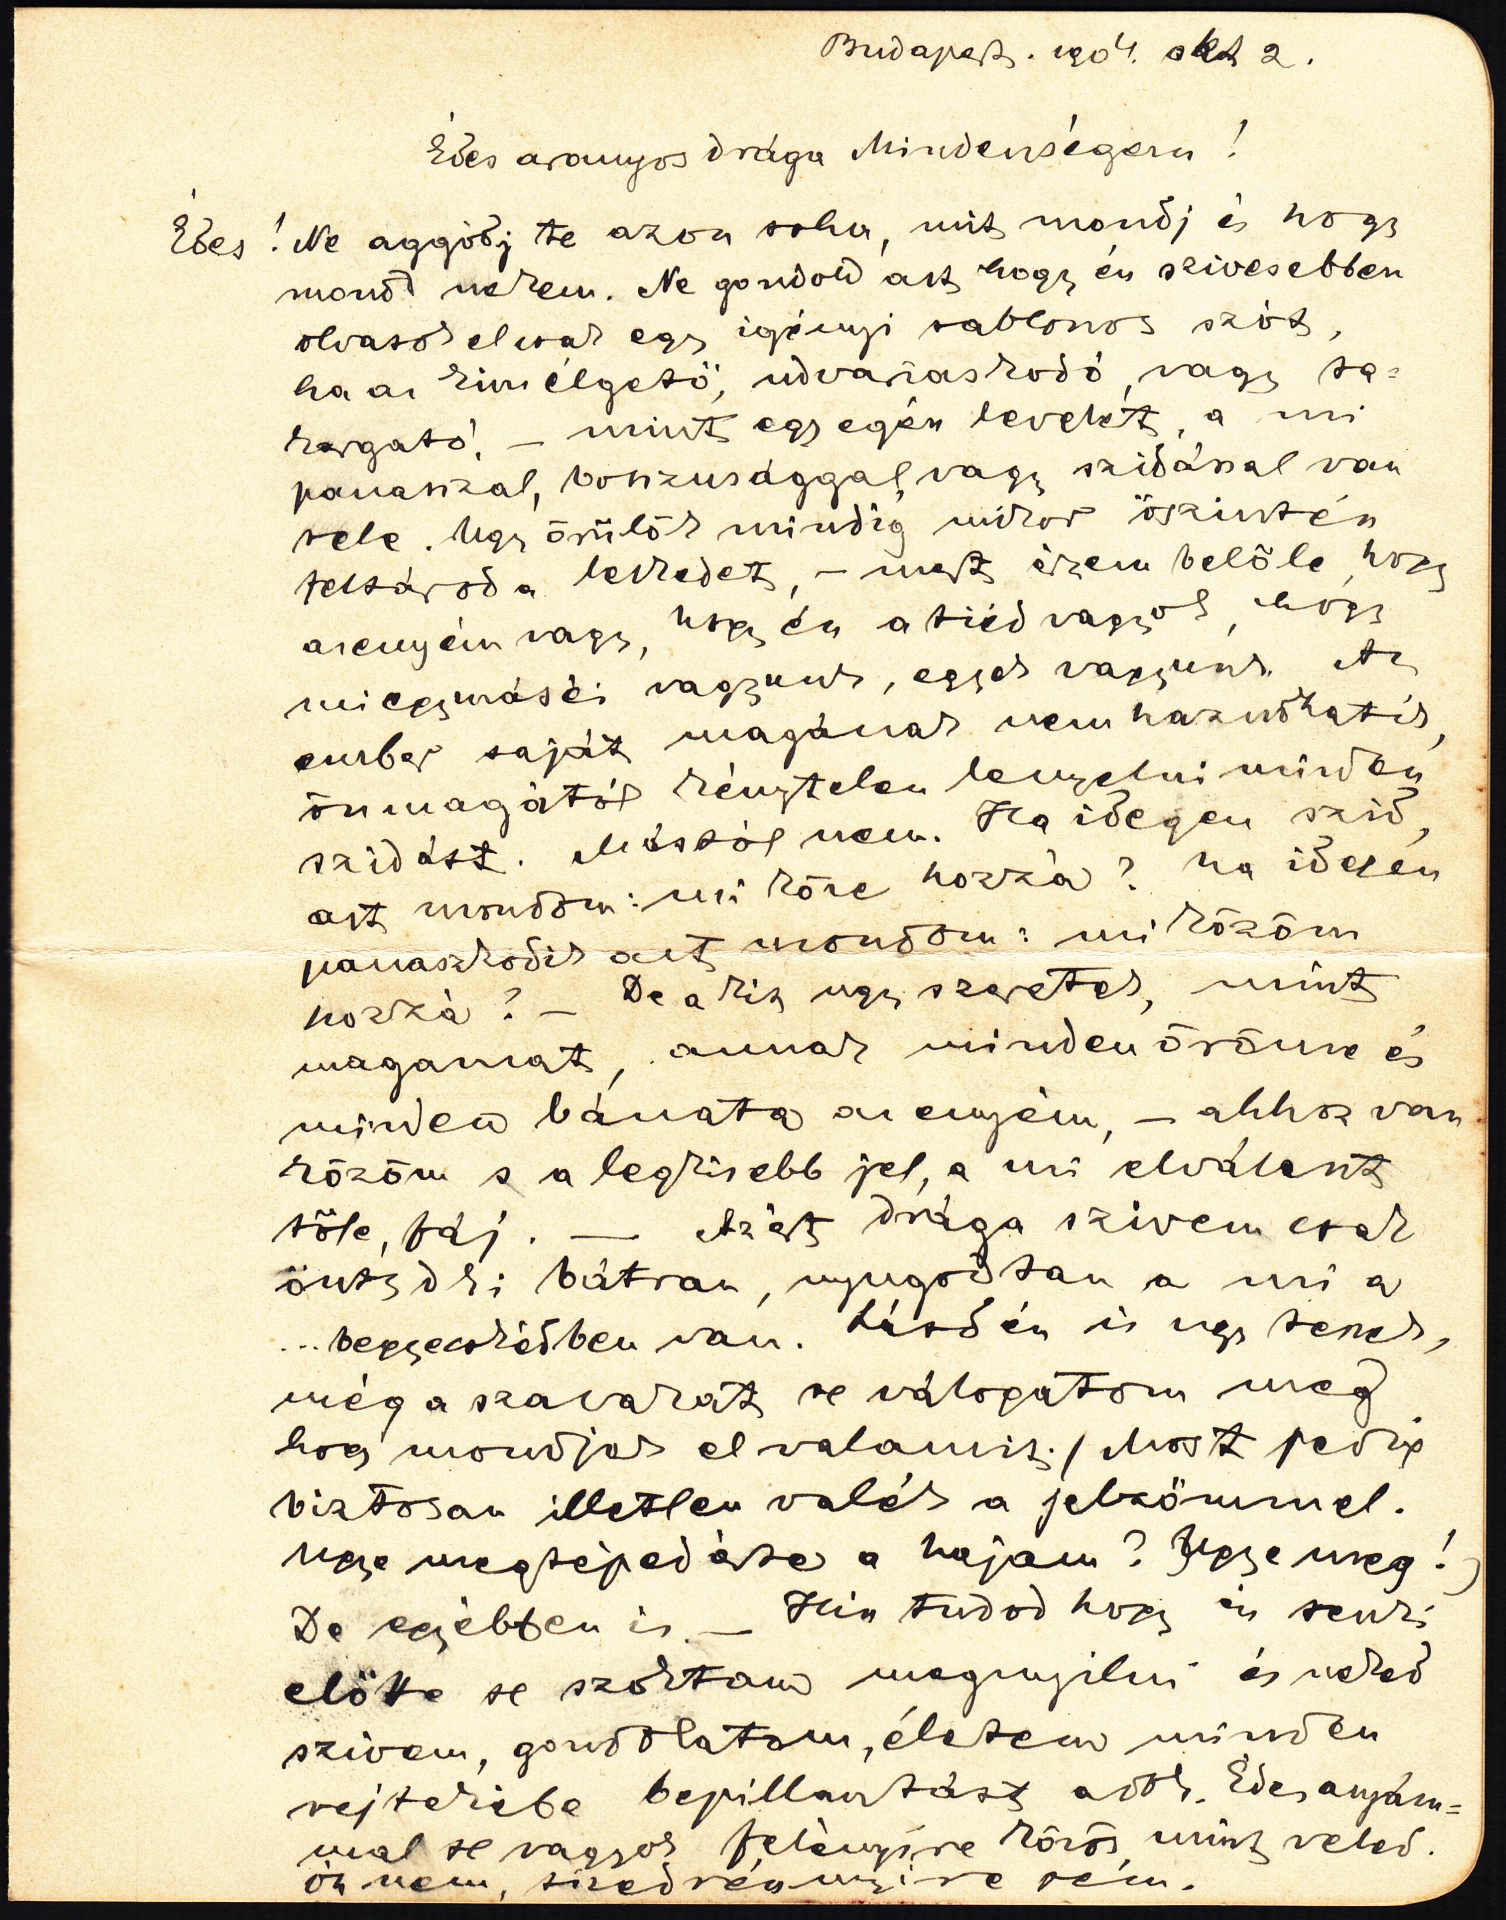 Budapest. 1904. okt 2.
Édes aranyos drága Mindenségem!
Édes! Ne aggódj te azon soha, mit mondj és hogy
mond nekem. Ne gondold azt hogy én szivesebben
olvasok el csak egy igényi sablonos szót,
ha az kimélgető, udvariaskodó, vagy ta=
kargató, – mint egy egén levelét, a mi
panaszal, boszusággal, vagy szidással van
tele. Ugy örülök mindig mikor őszintén
feltárod a lelkedet, – mert érzem belőle, hogy
az enyém vagy, hogy én a tiéd vagyok, hogy
mi egymáséi vagyunk, egyek vagyunk. Az
ember saját magának nem hazudhatik,
önmagától kénytelen lenyelni minden
szidást. Mástól nem. Ha idegen szid,
azt mondom: mi köze hozzá? ha idegen
panaszkodik azt mondom: mi közöm
hozzá? – De a kit ugy szeretek, mint
magamat, annak minden öröme és
minden bánata az enyém, – ahhoz van
közöm s a legkisebb jel, a mi elválaszt
tőle, fáj. — Azért drága szivem csak
öntsd ki bátran, nyugodtan a mi a
... begyecskédben van. Lásd én is ugy teszek,
még a szavakat se válogatom meg
hogy mondjak el valamit. / Most pedig
biztosan illetlen valék a jelzőmmel.
Ugye megtépedáste a hajam? Ugye meg!)
De egyébben is. – Hisz tudod hogy én senki
előtt se szoktam megnyilni és neked
szivem, gondolatom, életem minden
rejtekébe bepillantást adok. Édes anyám=
mal se vagyok felényire közös, mint veled.
óh nem, tizedrésznyire sem.